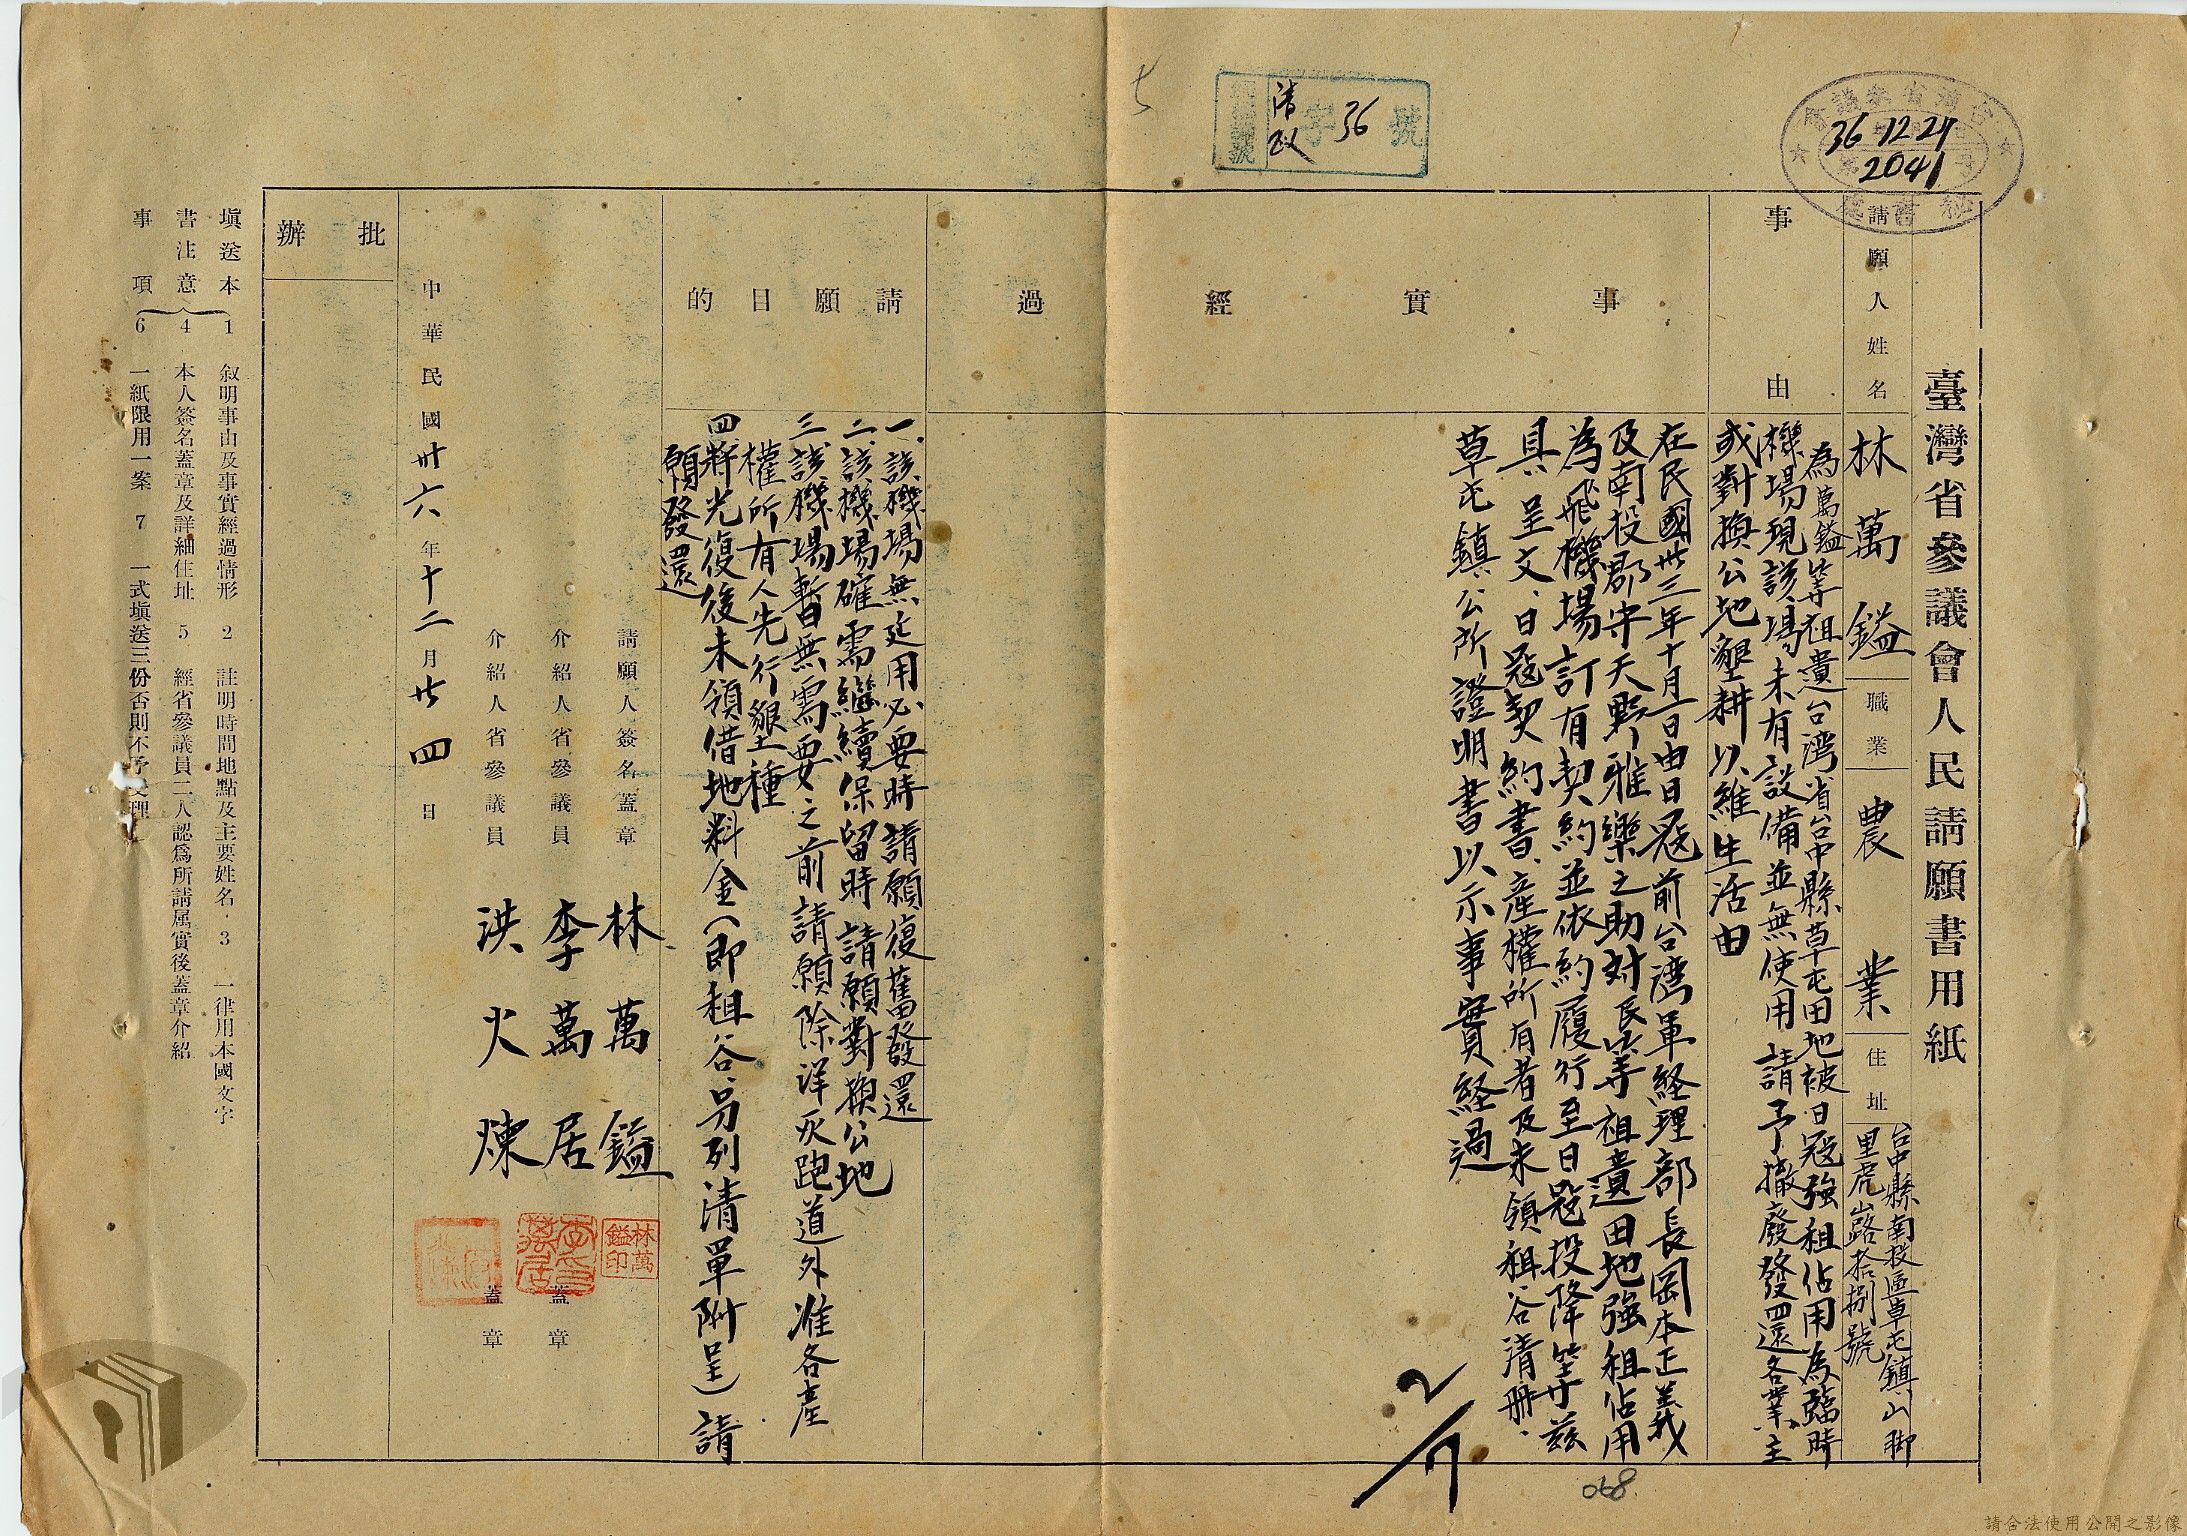 臺灣省參議會人民請願書用紙
請願人姓名
林萬鎰
職業
農業
住址
台中縣南投區草屯鎮山脚
里虎山路拾捌號
事由
為萬鎰等祖遺台湾省台中縣草屯田地被日寇強租佔用為臨時
機場現該場未有設備並無使用請予撤廢發還各業主
或對換公地墾耕以維生活由
事實經過
在民國卅三年十月一日由日寇前台湾軍経理部長岡本正義
及南投郡守天野雅樂之助対民等祖遺田地強租佔用
為飛機場訂有契約並依約履行至日寇投降等茲
具呈文、日寇契約書、産權所有者及未領租谷清册、
草屯鎮公所證明書以示事實経過
請願目的
一、該機場無延用必要時請願復舊發還
二、該機場確需繼續保留時請願對換公地
三、該機場暫無需要之前請願除洋灰跑道外准各產
權所有人先行墾種
四、將光復後未領借地料金（即租谷、另列清單附呈）請
願發還
請願人簽名蓋章 林萬鎰
介紹人省參議員 李萬居 蓋章
介紹人省參議員 洪火煉 蓋章
中華民國卅六年十二月廿四日
批辦
填送本書注意事項
1 叙明事由及事實經過情形 2 註明時間地點及主要姓名 3 一律用本國文字
4 本人簽名蓋章及詳細住址 5 經省參議員二人認爲所請属實後蓋章介紹
6 一紙限用一案 7 一式塡送三份否則不予受理
清政字36號
36 12 27
2041
林萬鎰印
2/7
068
請合法使用公開之影像